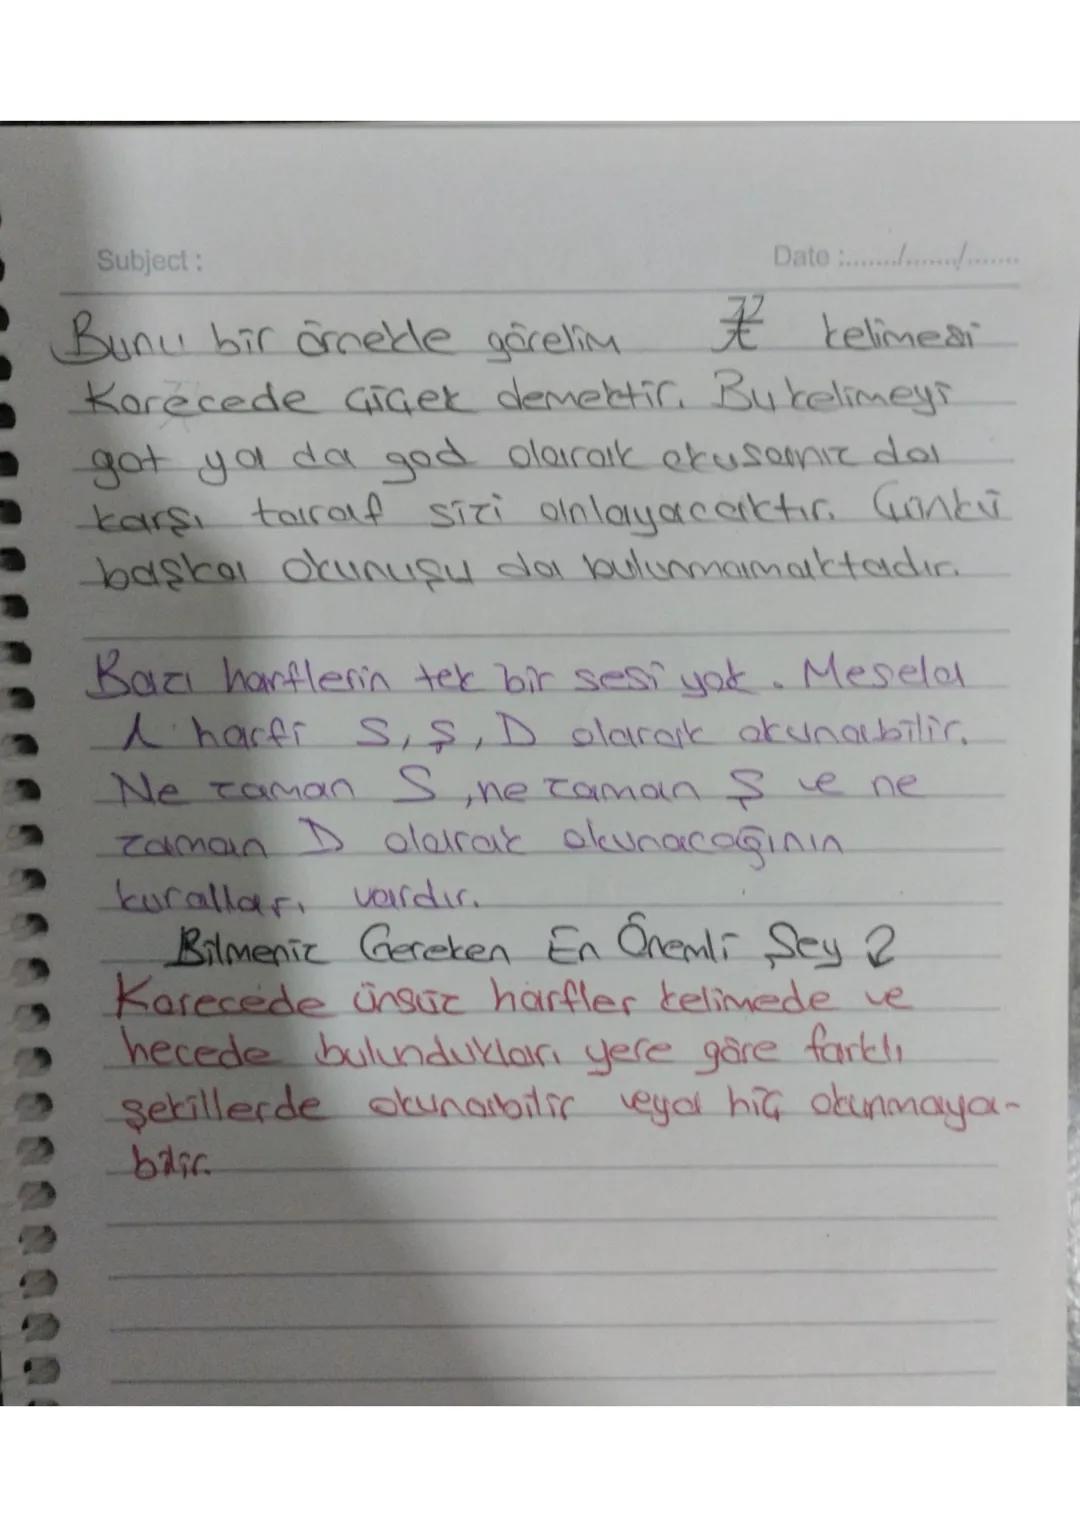 Subject :
Date :......./......./.......
Bunu bir örnekle görelim 꽃 kelimesi
Korecede çiçek demektir. Bu kelimeyi
got ya da god olarak okusanız da
karşı taraf sizi anlayacaktır. Çünkü
başka okunuşu da bulunmamaktadır.
Bazı harflerin tek bir sesi yok. Mesela
ㅅ harfi S, Ş, D olarak okunabilir.
Ne zaman S, ne zaman Ş ve ne
zaman D olarak okunacağının
kuralları vardır.
Bilmeniz Gereken En Önemli Şey 2
Korecede ünsüz harfler kelimede ve
hecede bulundukları yere göre farklı
şekillerde okunabilir veya hiç okunmaya-
bilir.